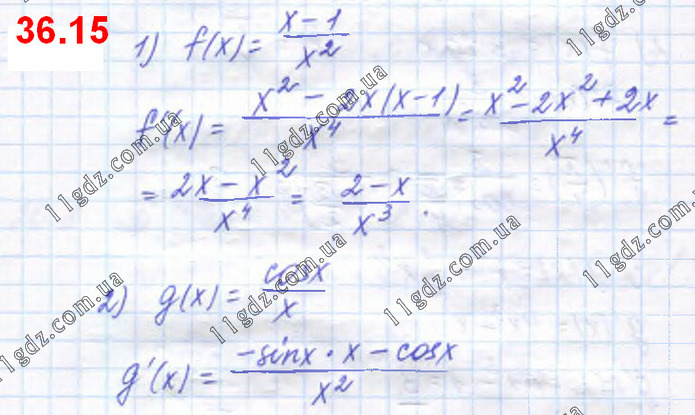 36.15
1) f(x) = \frac{x-1}{x^2}
f'(x) = \frac{x^2 - 2x(x-1)}{x^4} = \frac{x^2 - 2x^2 + 2x}{x^4} =
= \frac{2x - x^2}{x^4} = \frac{2-x}{x^3}.
2) g(x) = \frac{cosx}{x}
g'(x) = \frac{-sinx · x - cosx}{x^2}
11gdz.com.ua
11gdz.com.ua
11gdz.com.ua
11gdz.com.ua
11gdz.com.ua
11gdz.com.ua
11gdz.com.ua
11gdz.com.ua